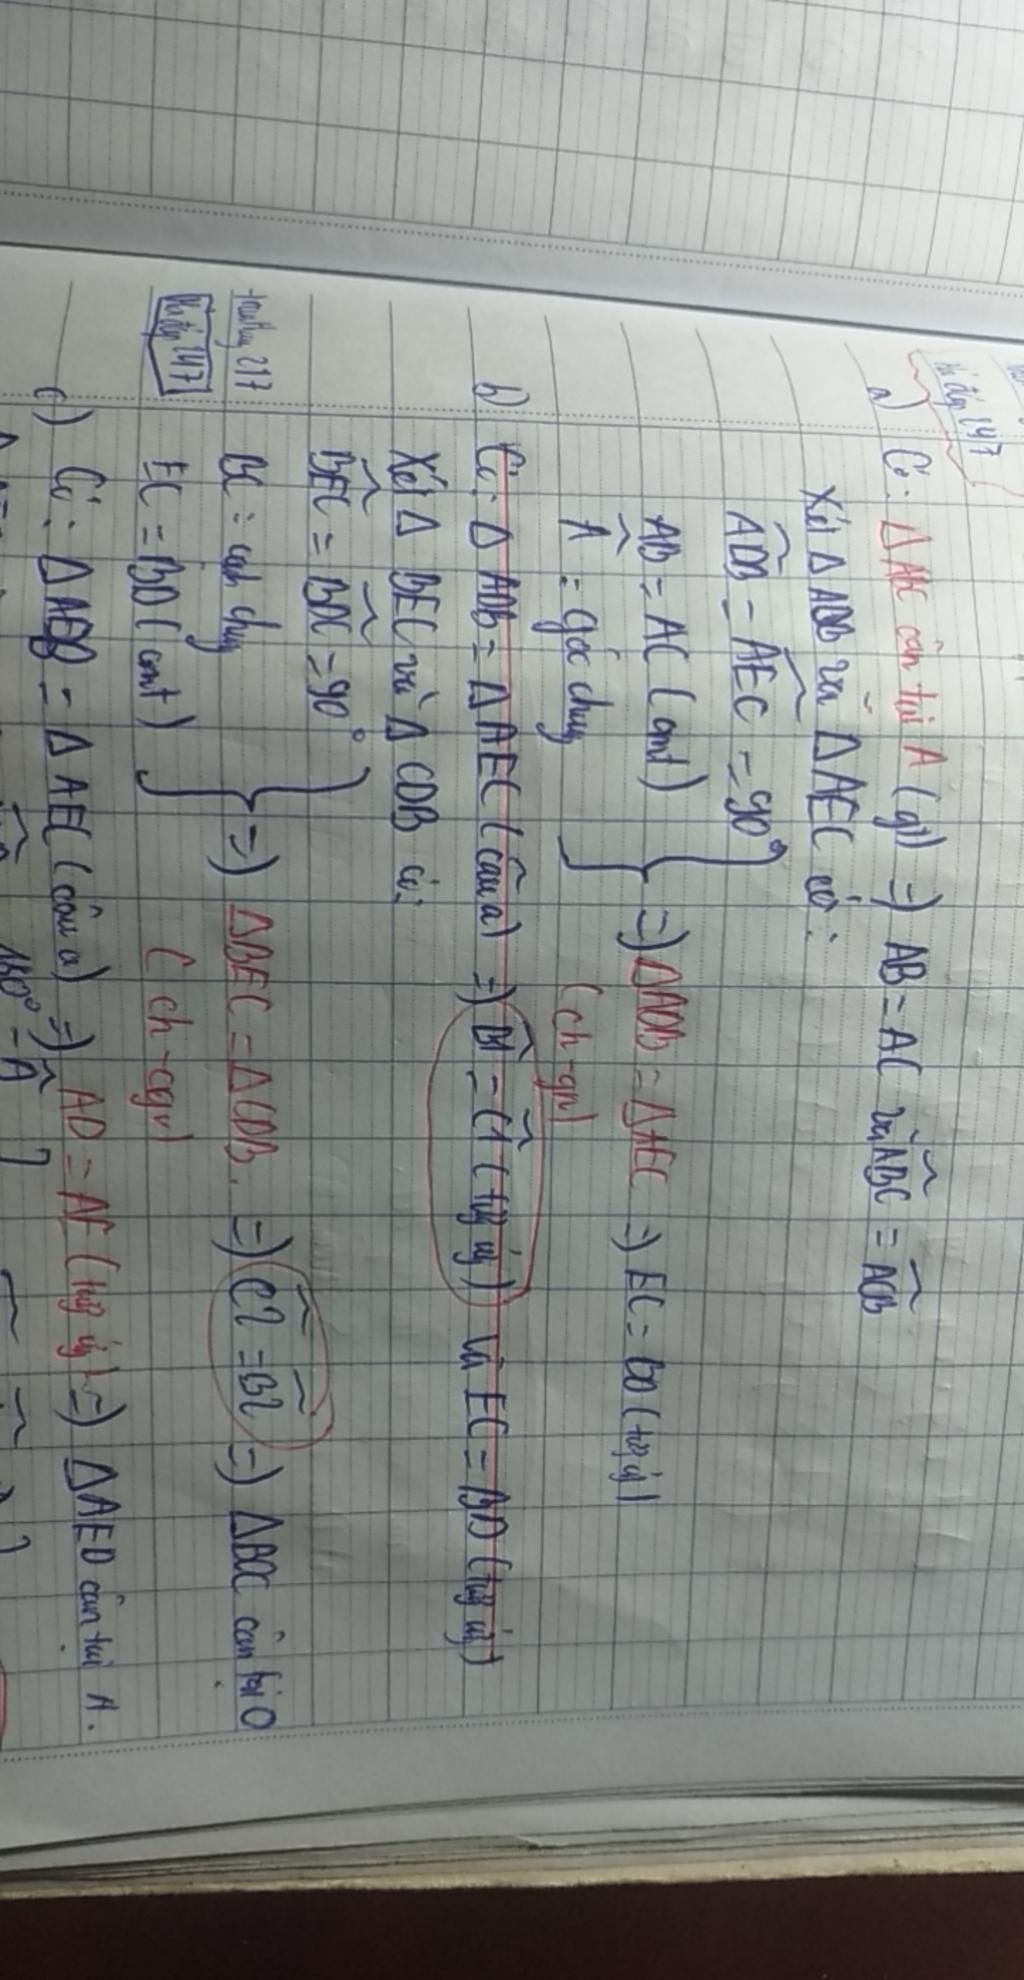 a) Có: Δ ABC cân tại A (gt) =) AB = AC và ABC = ACB
Xét Δ ADB và Δ AEC có:
ADB = AEC = 90°
AB = AC (cmt)
A = góc chung
=) ΔADB = ΔAEC =) EC = BD (tg ứ)
(ch-gn)
b) Có: Δ ADB = Δ AEC (câu a) =) B1 = C1 (tg ứ) và EC = BD (tg ứ)
Xét Δ BEC và Δ CDB có:
BEC = BDC = 90°
BC: cạnh chung
EC = BD (cmt)
=) ΔBEC = ΔCDB. =) C2 = B2 =) ΔBOC cân tại O
(ch-cgv)
c) Có: ΔAEB = Δ AEC (câu a) =) AD = AE (tg ứ) =) ΔAED cân tại A.
180° - A